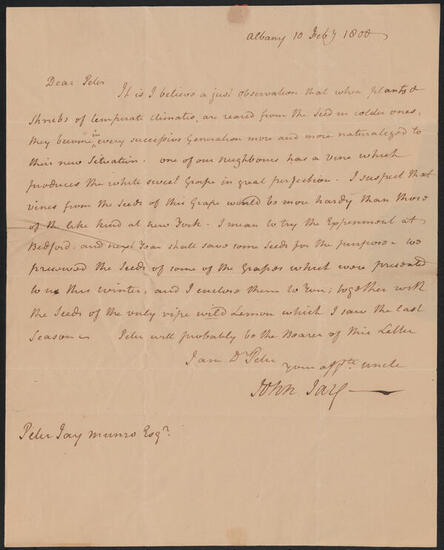 Albany 10 Feby 1800
Dear Peter
It is I believe a just observation that when plants &
shrubs of temperate climates, are reared from the Seed in colder ones,
they become in every successive Generation more and more naturalized to
their new Situation. one of our neighbours has a vine which
produces the white sweet Grape in great perfection. I suspect that
vines from the Seeds of this Grape would be more hardy than those
of the like kind at new York. I mean to try the Experiment at
Bedford, and next year shall save some Seeds for the purpose. we
preserved the Seeds of some of the Grapes which were presented
to us this winter, and I enclose them to you; together with
the Seeds of the only ripe wild Lemon which I saw the last
Season. Peter will probably be the Bearer of this Letter
I am Dr. Peter
your affte. uncle
John Jay
Peter Jay Munro Esqr.